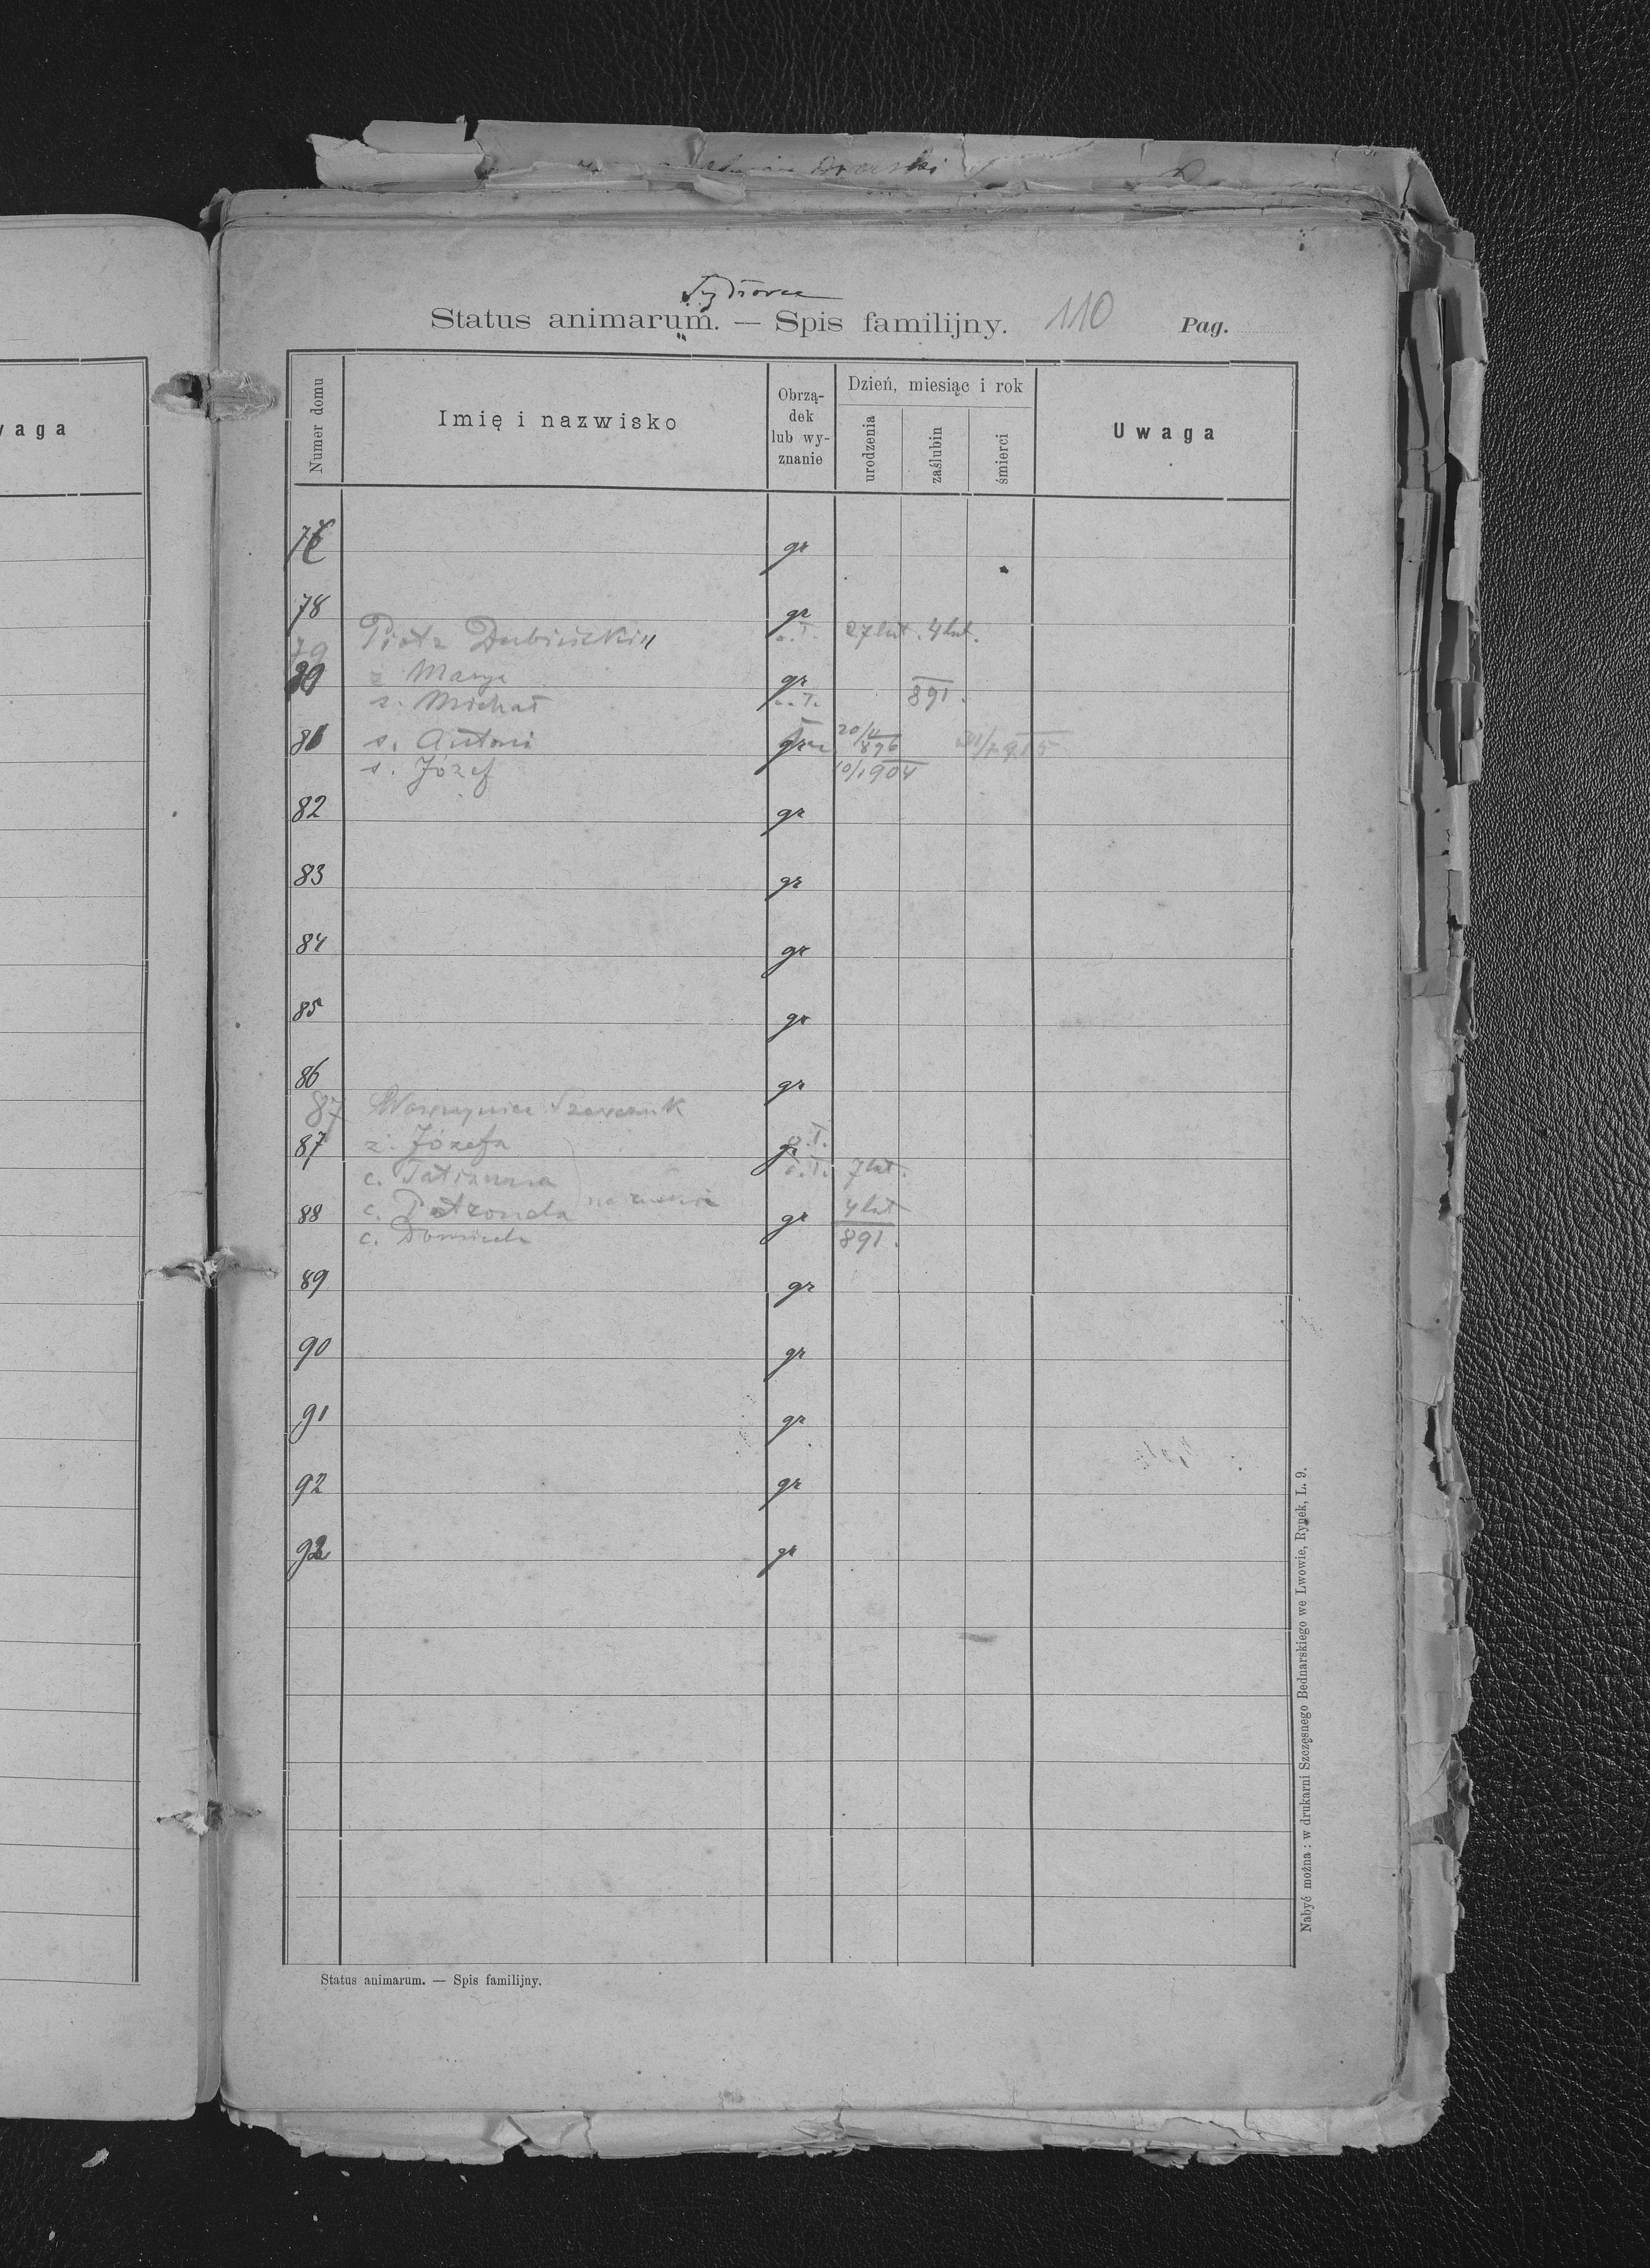 Status animarum. — Spis familijny. 110 Pag.
Numer domu
Imię i nazwisko
Obrzą-
dek
lub wy-
znanie
Dzień, miesiąc i rok
urodzenia
zaślubin
śmierci
Uwaga
waga
gr
78 gr
79 Piotr 27 lat. 4 lut.
80 ż Marya gr
s. Michał 891.
81 s. Antoni 20/4 896
s. Józef 10/1904
82 gr
83 gr
84 gr
85 gr
86 gr
87 Wawrzyniec Szewczuk
87 ż. Józefa gr o.Ł.
c. Tatianna o.Ł. 7 lut.
88 c. Petronela gr 4 lut
c. 891.
89 gr
90 gr
91 gr
92 gr
93 gr
Status animarum. — Spis familijny.
Nabyć można: w drukarni Szczęsnego Bednarskiego we Lwowie, Rynek, L. 9.